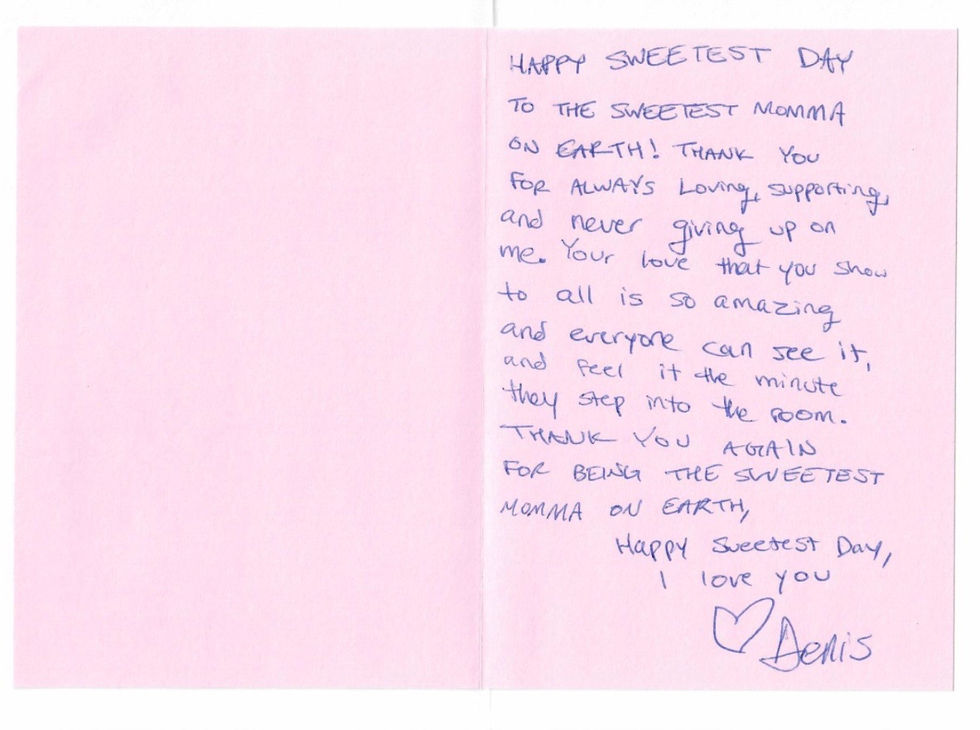 HAPPY SWEETEST DAY
TO THE SWEETEST MOMMA
ON EARTH! THANK YOU
FOR ALWAYS Loving, supporting,
and never giving up on
me. Your love that you show
to all is so amazing
and everyone can see it,
and feel it the minute
they step into the room.
THANK YOU AGAIN
FOR BEING THE SWEETEST
MOMMA ON EARTH,
Happy Sweetest Day,
I love you
♡ Denis